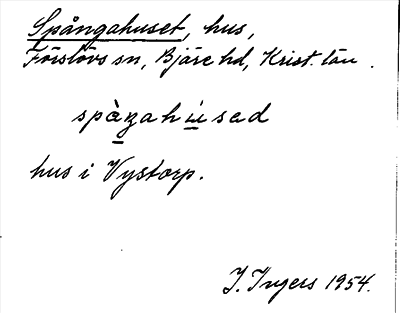 Spångahuset, hus,
Förslövs sn, Bjäre hd, Krist. län.
spàŋahúsed
hus i Vystorp.
I. Ingers 1954.